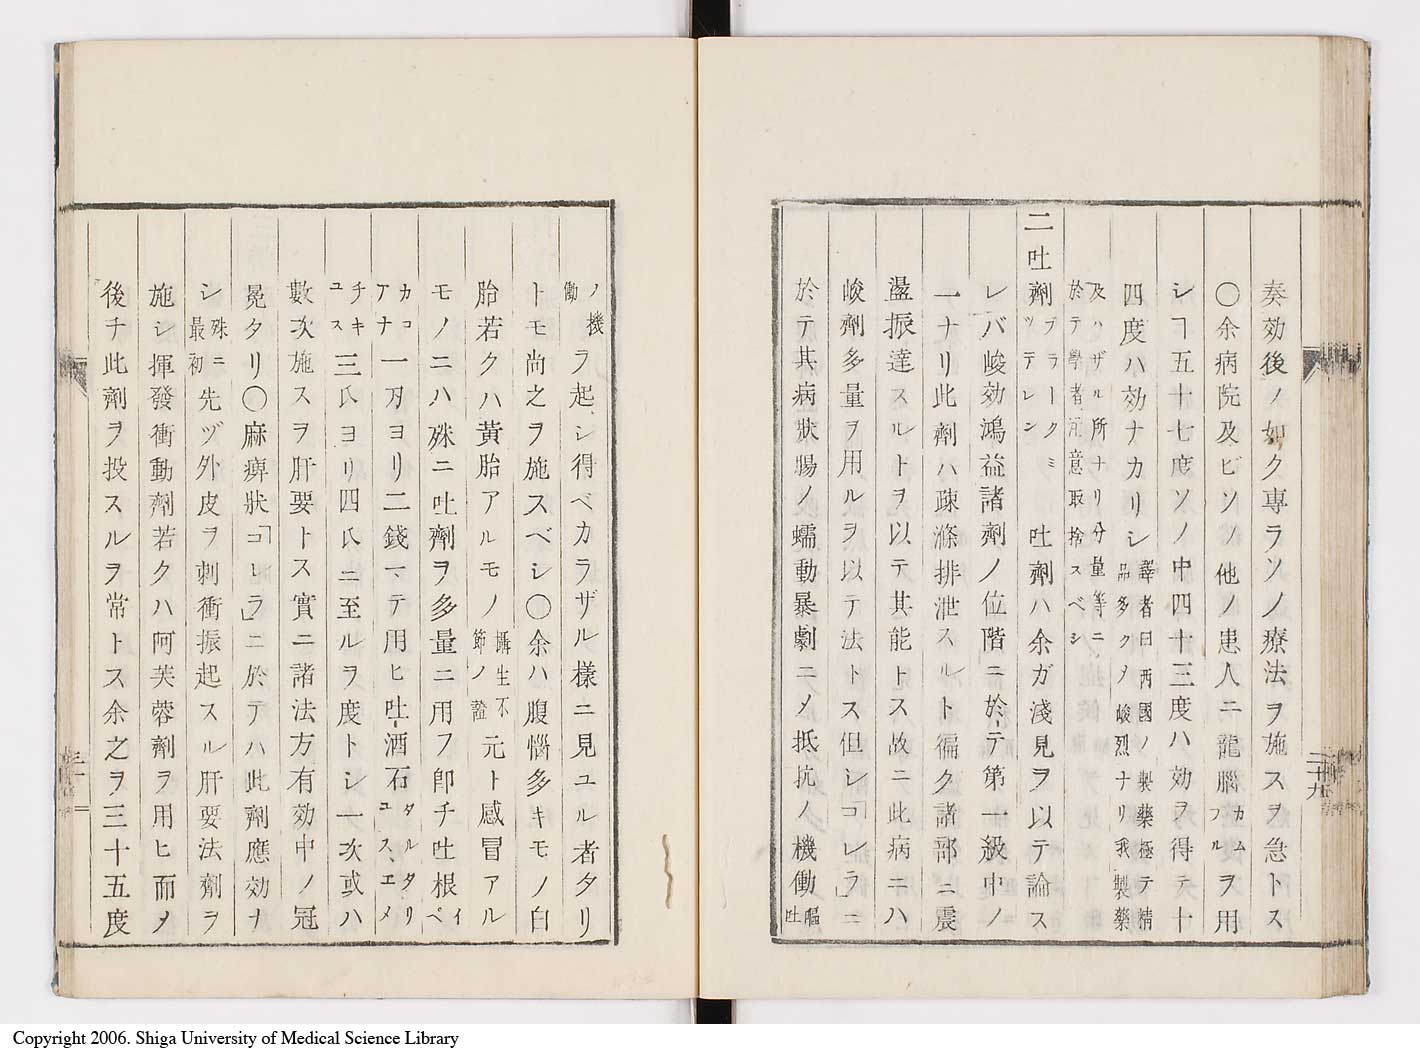 奏効後ノ如ク專ラソノ療法ヲ施スヲ急トス
〇余病院及ビソノ他ノ患人ニ龍腦カムフルヲ用
シヿ五十七度ソノ中四十三度ハ効ヲ得テ十
四度ハ効ナカリシ譯者曰西國ノ製藥極テ精品多クメ峻烈ナリ我製藥
及ハザル所ナリ分量等ニ於テ學者注意取捨スベシ
二吐劑ブラークミッテレン 吐劑ハ余ガ淺見ヲ以テ論ス
レバ峻効鴻益諸劑ノ位階ニ於テ第一級中ノ
一ナリ此劑ハ疎滌排泄スルト徧ク諸部ニ震
盪振達スルトヲ以テ其能トス故ニ此病ニハ
峻劑多量ヲ用ルヲ以テ法トス但シ「コレラ」ニ
於テ其病狀腸ノ蠕動暴劇ニメ抵抗ノ機働嘔吐
二十九
ノ機働ヲ起シ得ベカラザル樣ニ見ユル者タリ
トモ尚之ヲ施スベシ〇余ハ腹惱多キモノ白
胎若クハ黄胎アルモノ攝生不節ノ證元ト感冒アル
モノニハ殊ニ吐劑ヲ多量ニ用フ即チ吐根イペ
カコアナ一刄ヨリ二錢マテ用ヒ吐酒石タルタリユスエメ
チキユス三氏ヨリ四氏ニ至ルヲ度トシ一次或ハ
數次施スヲ肝要トス實ニ諸法方有効中ノ冠
冕タリ〇麻痺狀「コレラ」ニ於テハ此劑應効ナ
シ殊ニ最初先ヅ外皮ヲ刺衝振起スル肝要法劑ヲ
施シ揮發衝動劑若クハ阿芙蓉劑ヲ用ヒ而メ
後チ此劑ヲ投スルヲ常トス余之ヲ三十五度
三十
Copyright 2006. Shiga University of Medical Science Library